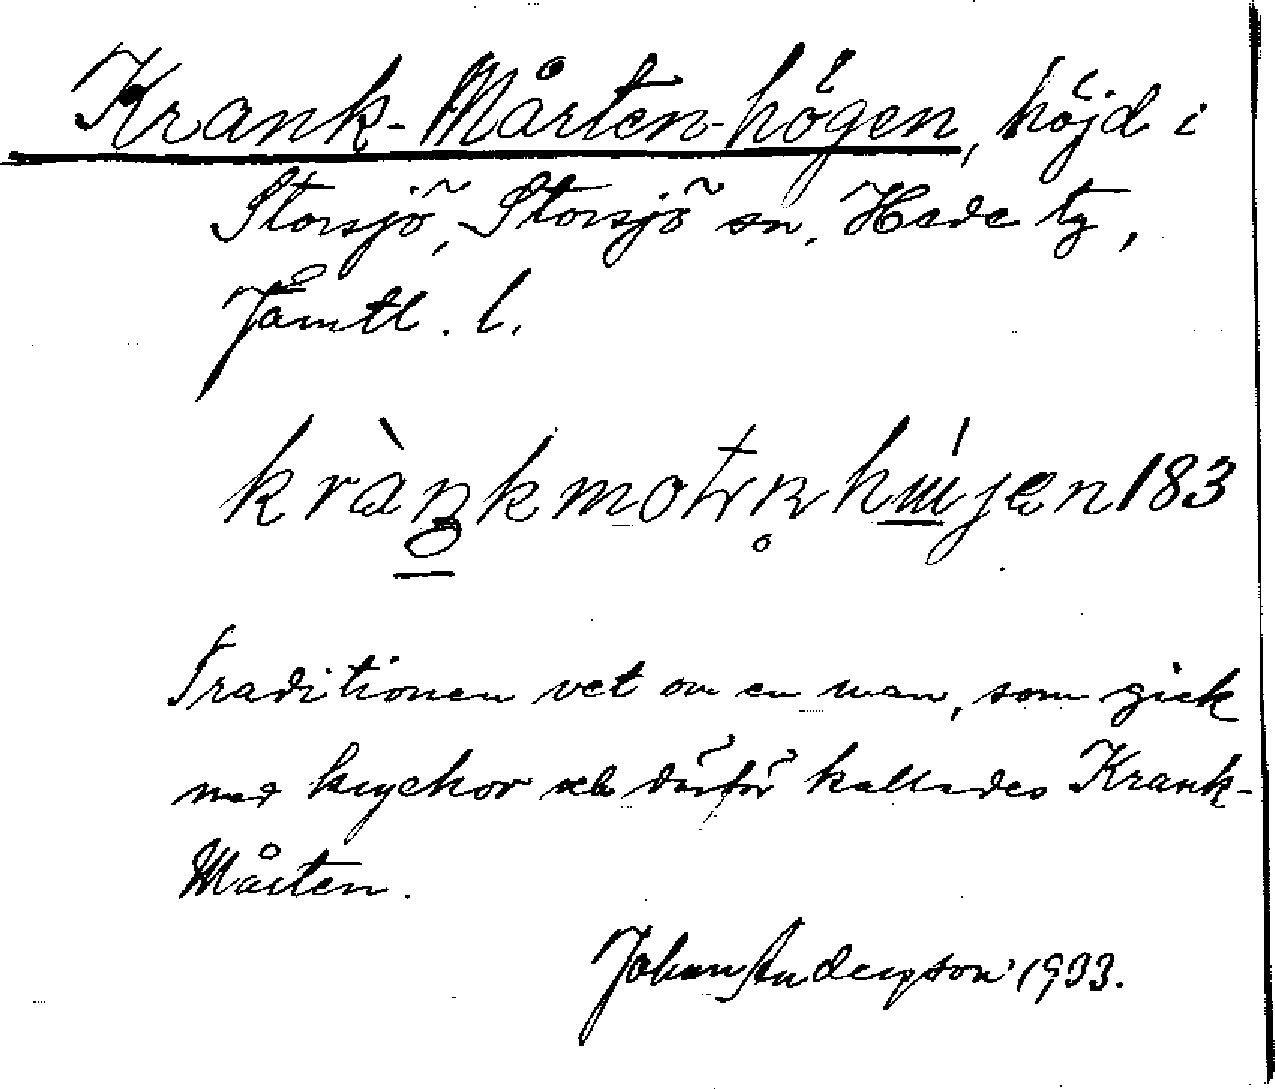 Krank-Mårten-högen, höjd i
Storsjö, Storsjö sn, Hede tg,
Jämtl. l.
krànkmotṛn̥hɯ́jen 183
Traditionen vet om en man, som gick
med kryckor och därför kallades Krank-
Mårten.
Johan Andersson 1933.